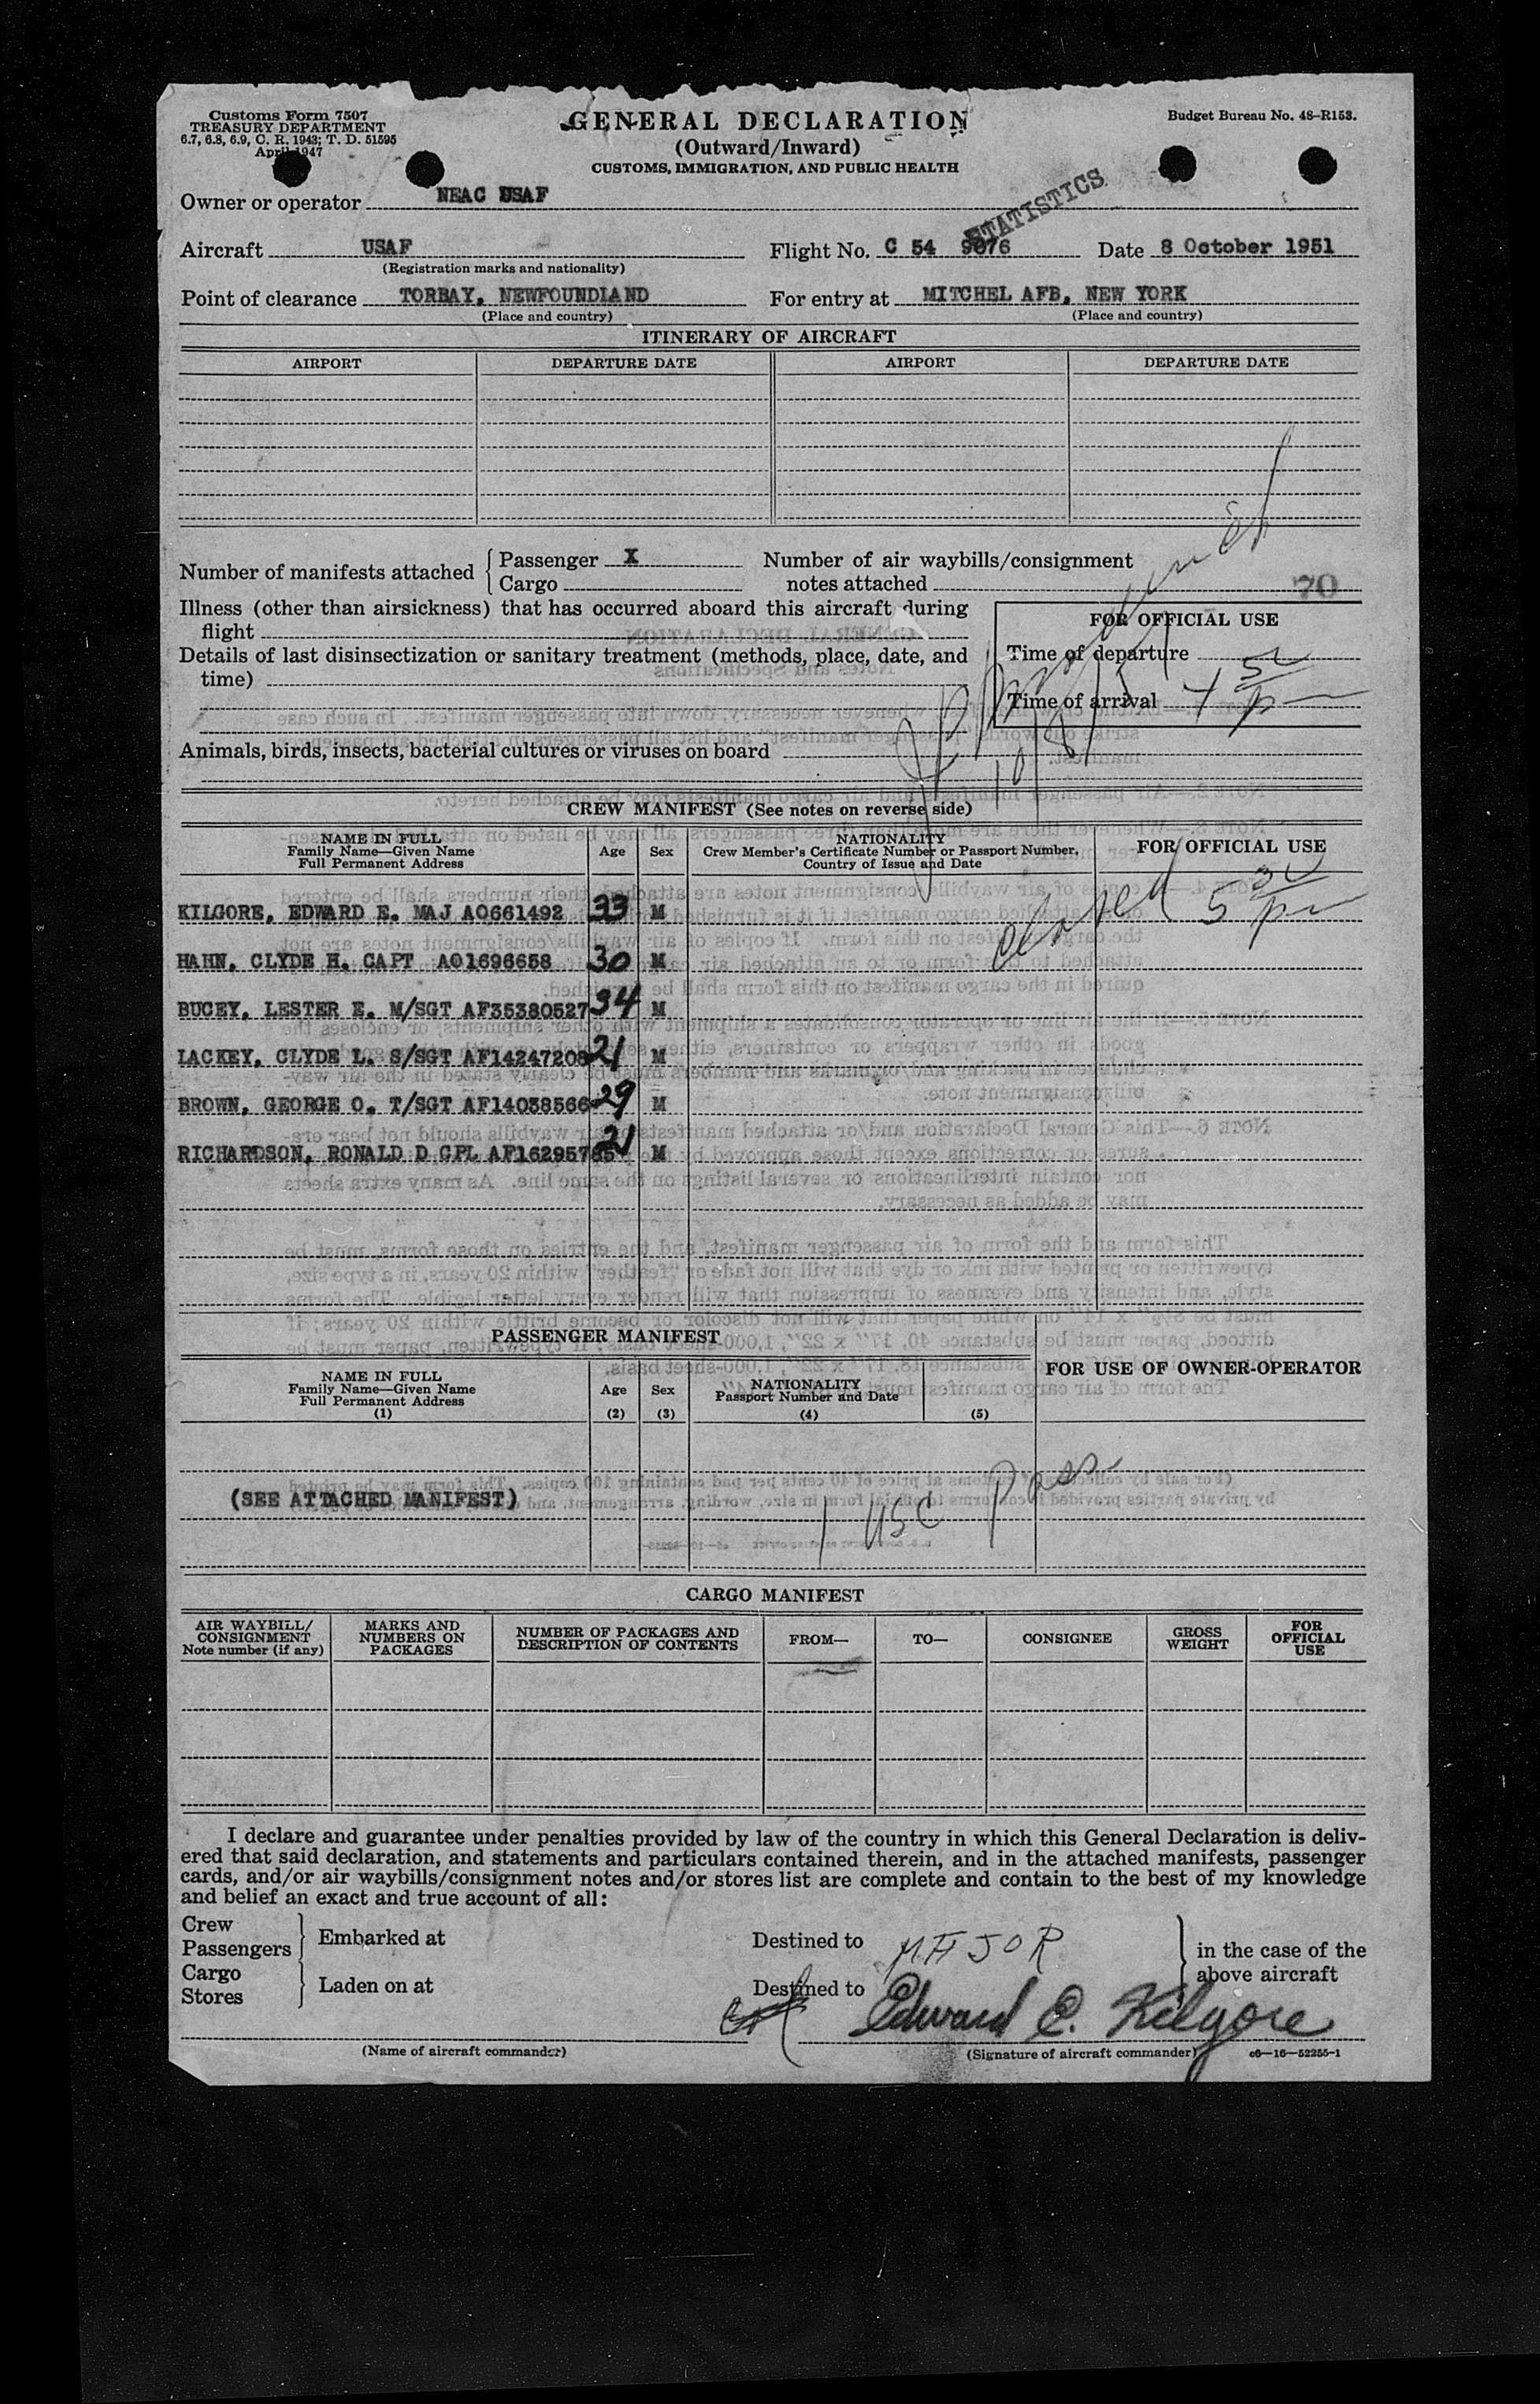 Customs Form 7507
TREASURY DEPARTMENT
6.7, 6.8, 6.9, C. R. 1943; T. D. 51595
April 1947
GENERAL DECLARATION
(Outward/Inward)
CUSTOMS, IMMIGRATION, AND PUBLIC HEALTH
Budget Bureau No. 48-R153.
STATISTICS
Owner or operator NEAC USAF
Aircraft USAF Flight No. C 54 9076 Date 8 October 1951
(Registration marks and nationality)
Point of clearance TORBAY, NEWFOUNDLAND For entry at MITCHEL AFB, NEW YORK
(Place and country) (Place and country)
ITINERARY OF AIRCRAFT
AIRPORT DEPARTURE DATE AIRPORT DEPARTURE DATE
Number of manifests attached Passenger X Number of air waybills/consignment
Cargo notes attached
70
Illness (other than airsickness) that has occurred aboard this aircraft during
flight
FOR OFFICIAL USE
Details of last disinsectization or sanitary treatment (methods, place, date, and
time)
Time of departure
Time of arrival
Animals, birds, insects, bacterial cultures or viruses on board
CREW MANIFEST (See notes on reverse side)
NAME IN FULL
Family Name—Given Name
Full Permanent Address
Age Sex
NATIONALITY
Crew Member's Certificate Number or Passport Number,
Country of Issue and Date
FOR OFFICIAL USE
KILGORE, EDWARD E. MAJ AO661492 33 M
HAHN, CLYDE H. CAPT AO1696658 30 M
BUCEY, LESTER E. M/SGT AF35380527 34 M
LACKEY, CLYDE L. S/SGT AF14247208 21 M
BROWN, GEORGE O. T/SGT AF14038566 29 M
RICHARDSON, RONALD D CPL AF16295785 21 M
PASSENGER MANIFEST
NAME IN FULL
Family Name—Given Name
Full Permanent Address
(1)
Age
(2)
Sex
(3)
NATIONALITY
Passport Number and Date
(4) (5)
FOR USE OF OWNER-OPERATOR
(SEE ATTACHED MANIFEST) 1 USC Pass
CARGO MANIFEST
AIR WAYBILL/
CONSIGNMENT
Note number (if any)
MARKS AND
NUMBERS ON
PACKAGES
NUMBER OF PACKAGES AND
DESCRIPTION OF CONTENTS
FROM— TO— CONSIGNEE
GROSS
WEIGHT
FOR
OFFICIAL
USE
I declare and guarantee under penalties provided by law of the country in which this General Declaration is deliv-
ered that said declaration, and statements and particulars contained therein, and in the attached manifests, passenger
cards, and/or air waybills/consignment notes and/or stores list are complete and contain to the best of my knowledge
and belief an exact and true account of all:
Crew
Passengers Embarked at Destined to MAJOR in the case of the
Cargo above aircraft
Stores Laden on at Destined to
Edward E. Kilgore
(Name of aircraft commander) (Signature of aircraft commander) c6—16—52255-1